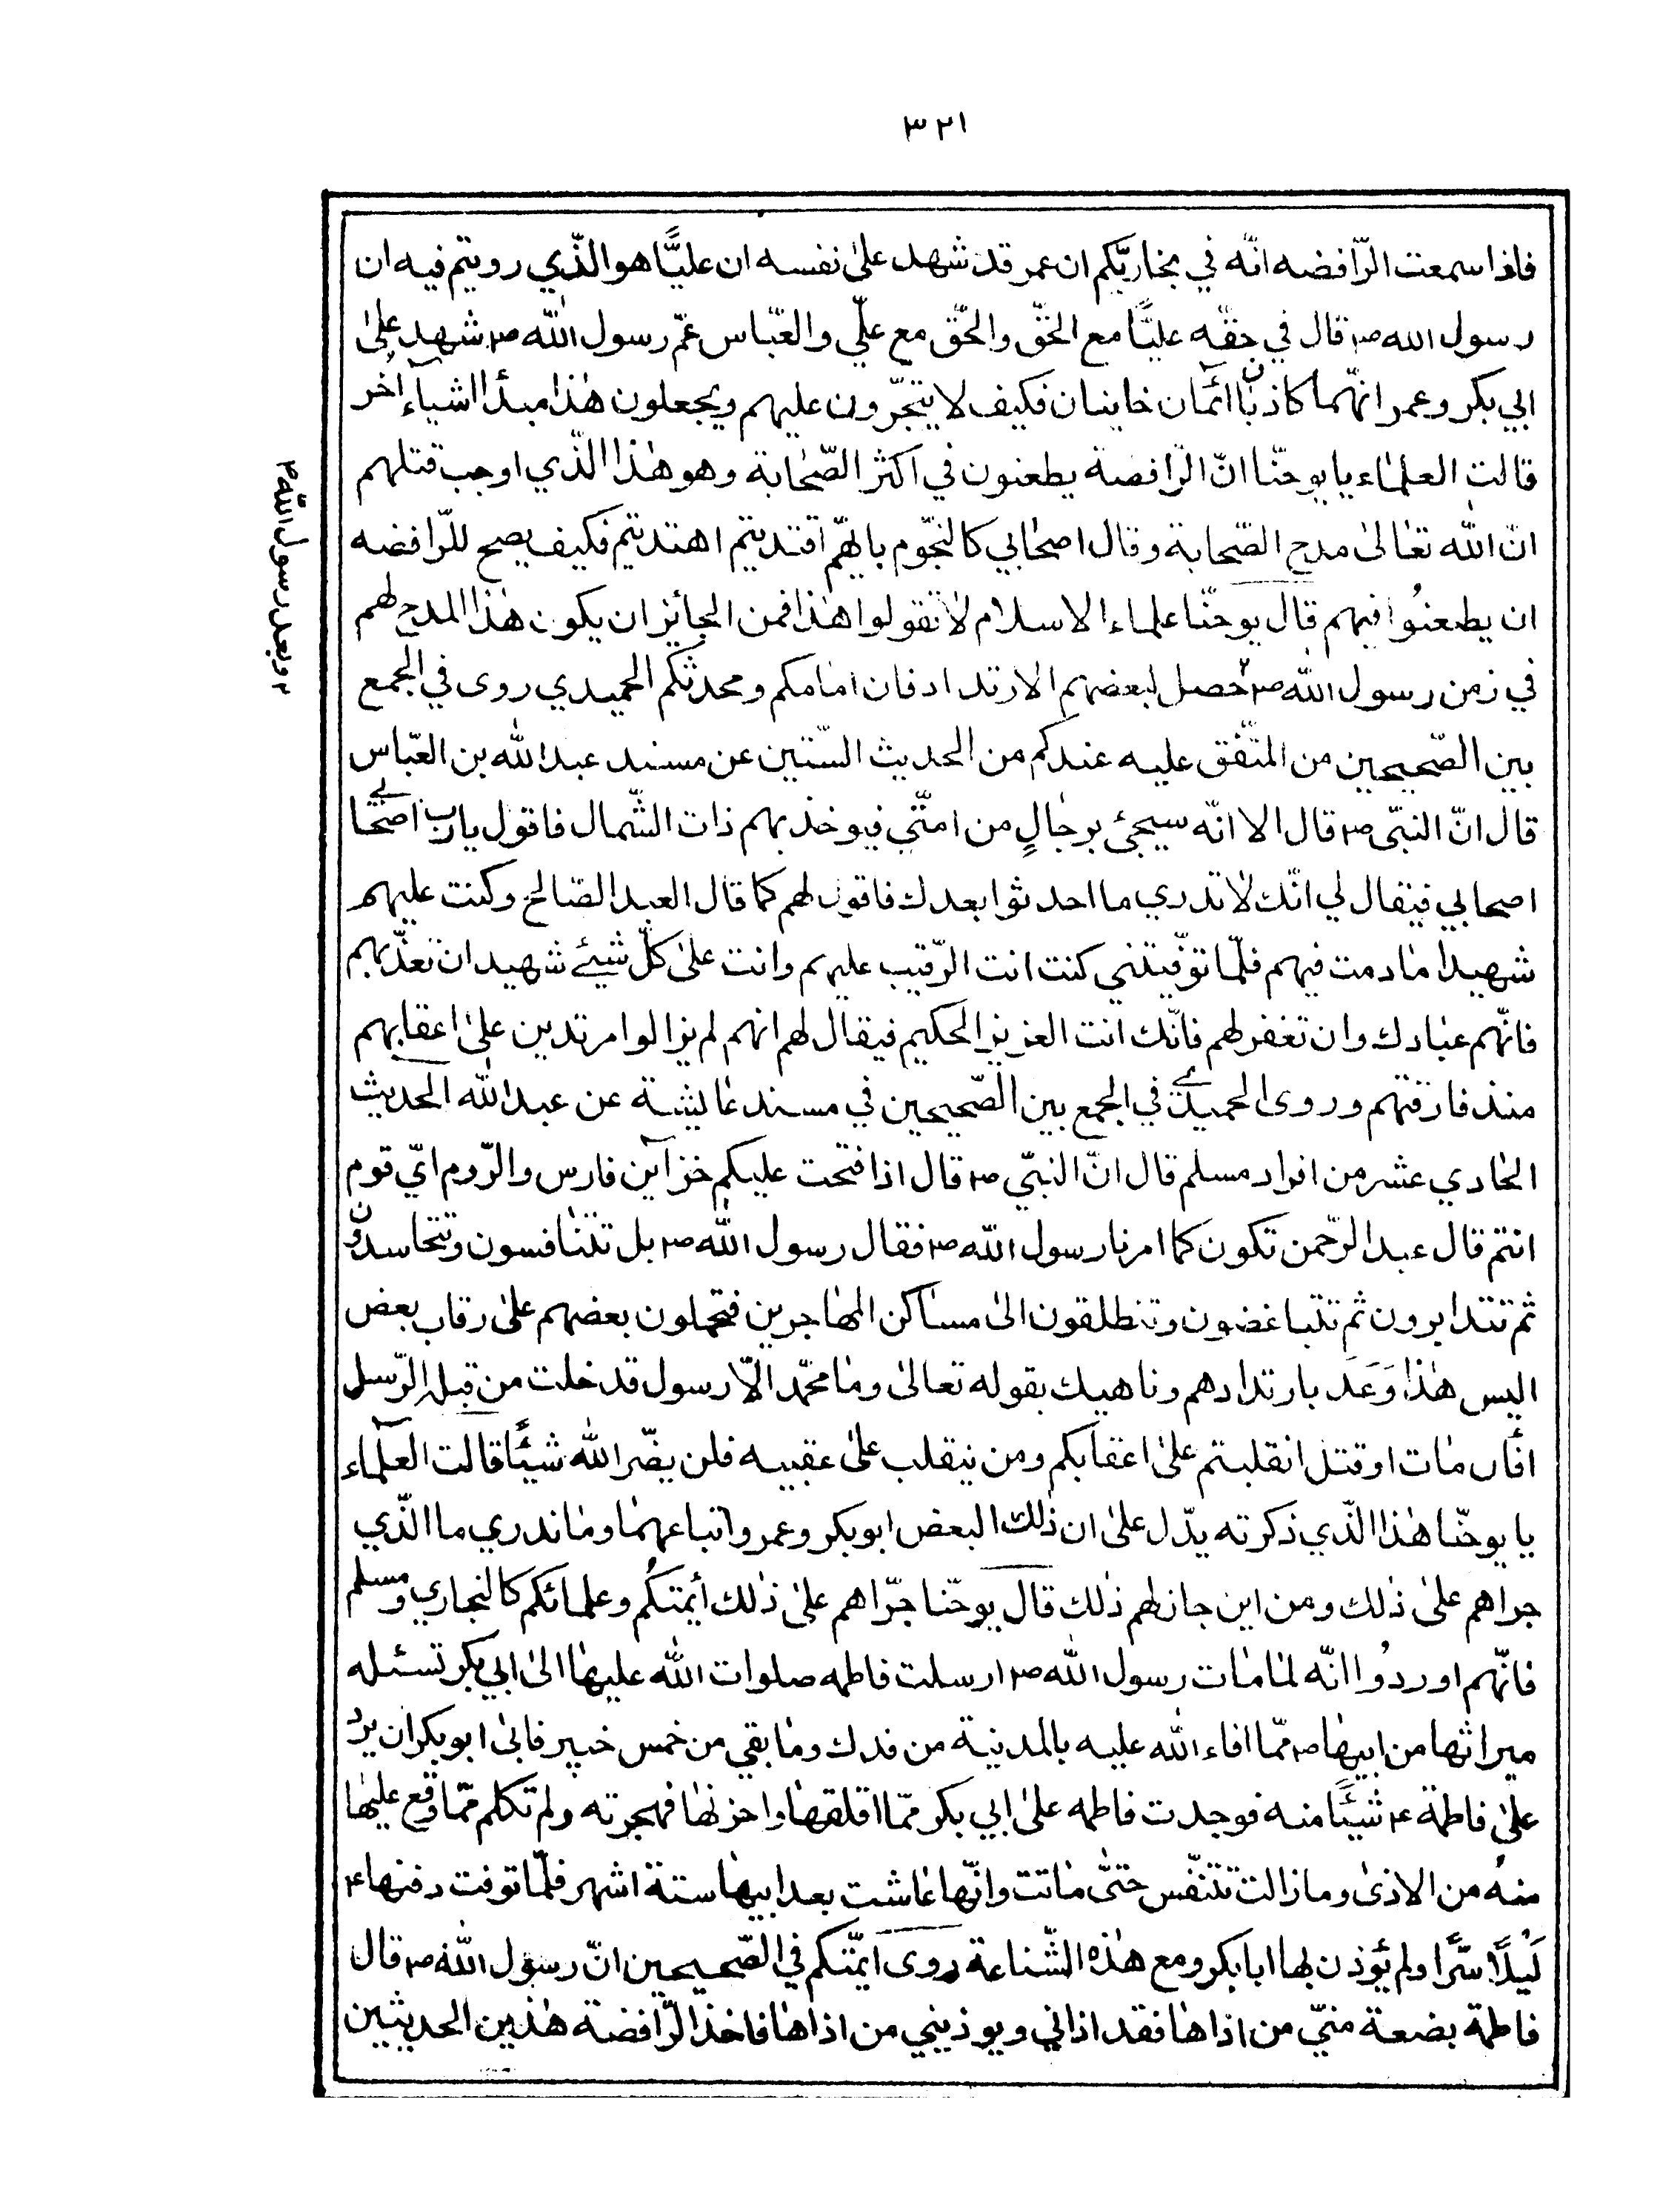 ٣٢١
فاذا سمعت الرّافضه انّه في بخاريّكم ان عمر قد شهد علىٰ نفسه ان عليًّا هو الّذي رويتم فيه ان
رسول الله ص قال في حقّه عليًّا مع الحقّ والحقّ مع عليّ والعبّاس عمّ رسول الله ص شهد علىٰ
ابي بكر وعمر انّهما كاذبان اثمان خاينان فكيف لا يتجرّون عليهم ويجعلون هٰذا مبدأ اشياء اخر
قالت العلمٰاء يا يوحنّا انّ الرّافضة يطعنون في اكثر الصّحٰابة وهو هٰذا الّذي اوجب قتلهم
انّ الله تعٰالىٰ مدح الصّحابة وقال اصحٰابي كالنجّوم بايّهم اقتديتم اهتديتم فكيف يصح للرّافضه
ان يطعنُوا فيهم قال يوحنّا علماء الاسلام لاٰ تقولوا هٰذا فمن الجائز ان يكون هٰذا المدح لهم
في زمن رسول الله ص٢ حصل لبعضهم الارتداد فان امٰامكم ومحدثكم الحميدي روى في الجمع
بين الصّحيحين من المتّفق عليه عندكم من الحديث السّتين عن مسند عبد الله بن العبّاس
قال انّ النبّى ص قال الا انّه سيجئ برجٰالٍ من امتّي فيوخذ بهم ذات الشّمال فاقول يا رب اصحٰابي
اصحابي فيقال لي انّك لاٰ تدري ما احدثوا بعدك فاقول لهم كما قال العبد الصّالح وكنت عليهم
شهيدا مٰا دمت فيهم فلمّا توفّيتني كنت انت الرّقيب عليهم وانت علىٰ كلّ شيئ شهيد ان تعذّبهم
فانّهم عبٰادك وان تغفر لهم فانّك انت العزيز الحكيم فيقال لهم انهم لم يزالوا مرتدين علىٰ اعقابهم
منذ فارقتهم وروى الحميدي في الجمع بين الصّحيحين في مسند عٰايشة عن عبد الله الحديث
الحٰادي عشر من افراد مسلم قال انّ النبيّ ص قال اذا فتحت عليكم خزآين فارس والرّوم ايّ قوم
انتم قال عبد الرّحمن تكون كما امرنا رسول الله ص فقال رسول الله ص بل تتنٰافسون وتتحاسدون
ثم تتدابرون ثم تتباغضون وتنطلقون الىٰ مسٰاكن المهٰاجرين فتحملون بعضهم علىٰ رقاب بعض
اليس هٰذا وَعَد بارتدادهم وناهيك بقوله تعالىٰ ومٰا محمّد الاّ رسول قد خلت من قبله الرّسل
افأن مٰات او قتل انقلبتم علىٰ اعقٰابكم ومن ينقلب علىٰ عقبيه فلن يضّر الله شيئًا قالت العلمآء
يا يوحنّا هٰذا الّذي ذكرته يدّل علىٰ ان ذٰلك البعض ابو بكر وعمر واتباعهمٰا ومٰا ندري ما الّذي
جراهم علىٰ ذٰلك ومن اين جاز لهم ذٰلك قال يوحّنا جرّاهم علىٰ ذٰلك أيمتكُم وعلمائكم كالبخاري ومسلم
فانّهم اوردُوا انّه لمٰا مٰات رسول الله ص ارسلت فاطمه صلوات الله عليهٰا الىٰ ابي بكر تسئله
ميراثها من ابيهٰا ص ممّا افاء الله عليه بالمدينة من فدك ومٰا بقي من خمس خيبر فابىٰ ابو بكر ان يردّ
علىٰ فاطمة ع شيئًا منه فوجدت فاطمه علىٰ ابي بكر ممّا اقلقهٰا واحزنهٰا فهجرته ولم تكلم ممّا وقع عليهٰا
منهُ من الاذىٰ وما زالت تتنفّس حتّىٰ مٰاتت وانّها عٰاشت بعد ابيهٰا ستة اشهر فلمّا توفت دفنهاع
لَيْلًا سّرًا ولم يؤذن لها ابا بكر ومع هٰذه الشّناعة روى ايمّتكم في الصّحيحين انّ رسول الله ص قال
فاطمة بضعة منيّ من اذاهٰا فقد اذاني ويوذيني من اذاهٰا فاخذ الرّافضة هٰذين الحديثين
٢ وبعد رسول الله ص